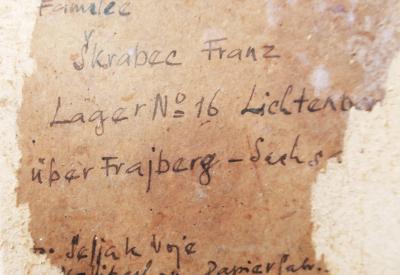 Familie
Škrabec Franz
Lager No 16 Lichtenber
über Frajberg - Sachs
Seljak Voje
Papierfabr.